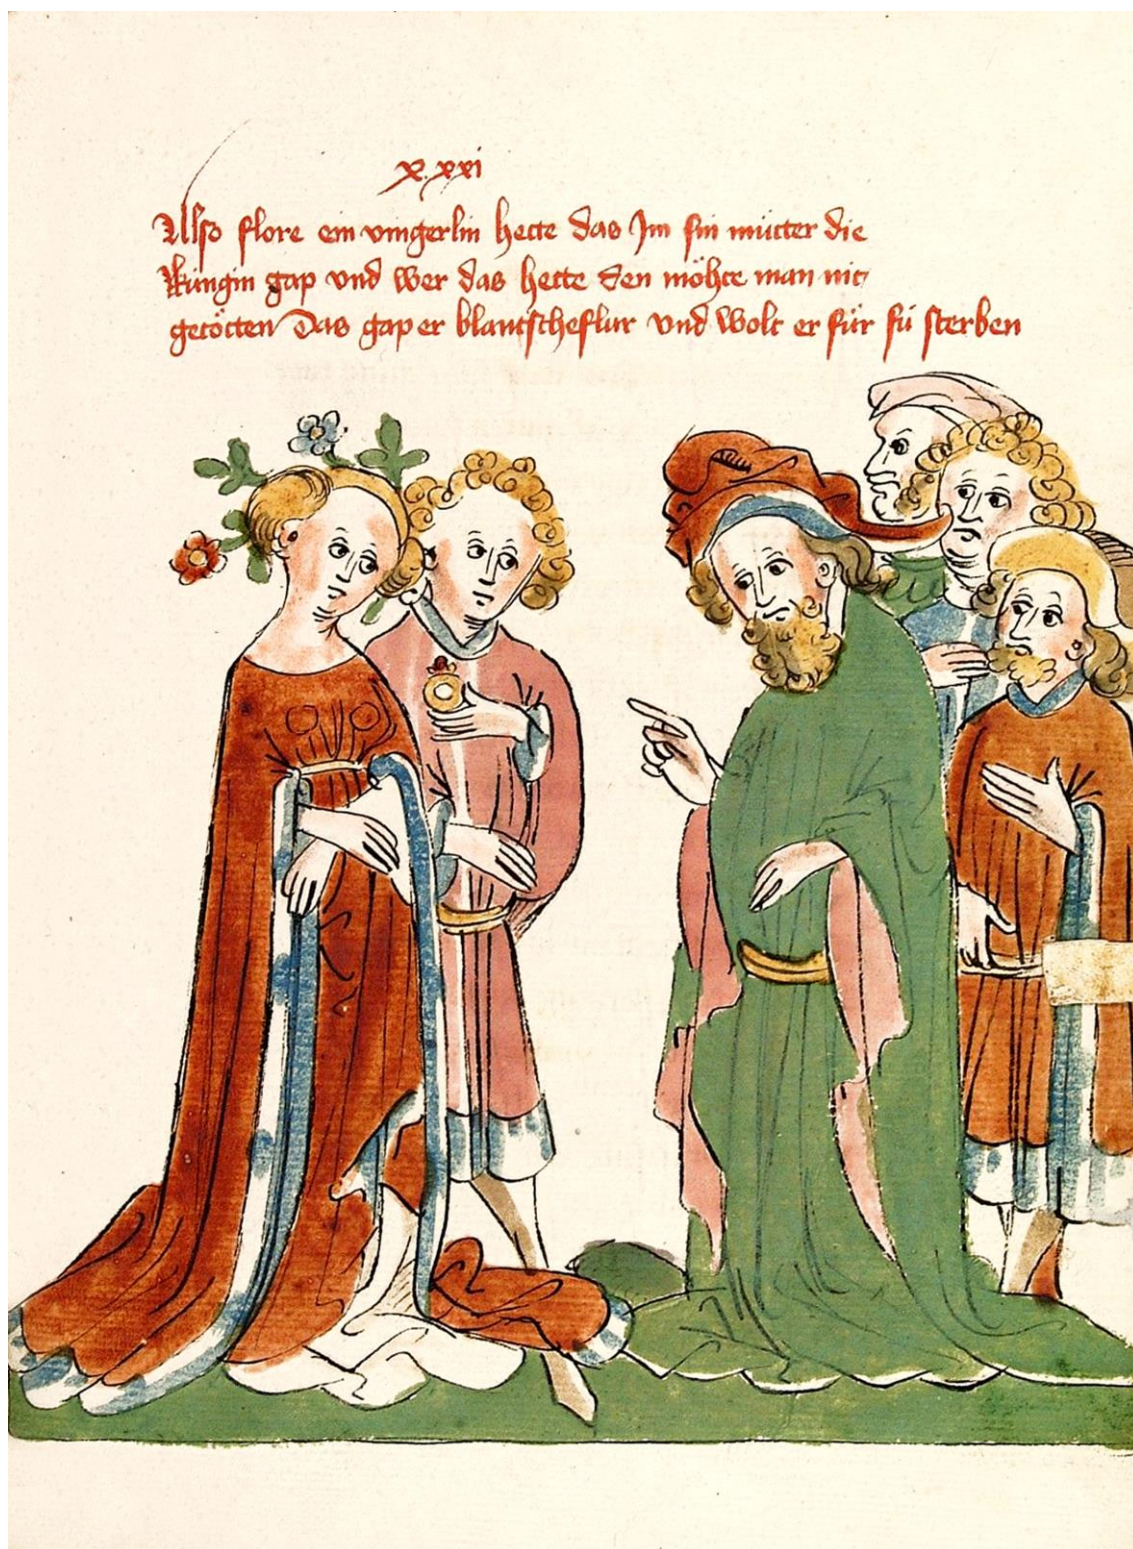 xxxi
Also flore ein vingerlin hette das Im sin mütter die
Küngin gap vnd wer das hette den möhte man nit
getötten Das gap er blantscheflur vnd wolt er für sü sterben